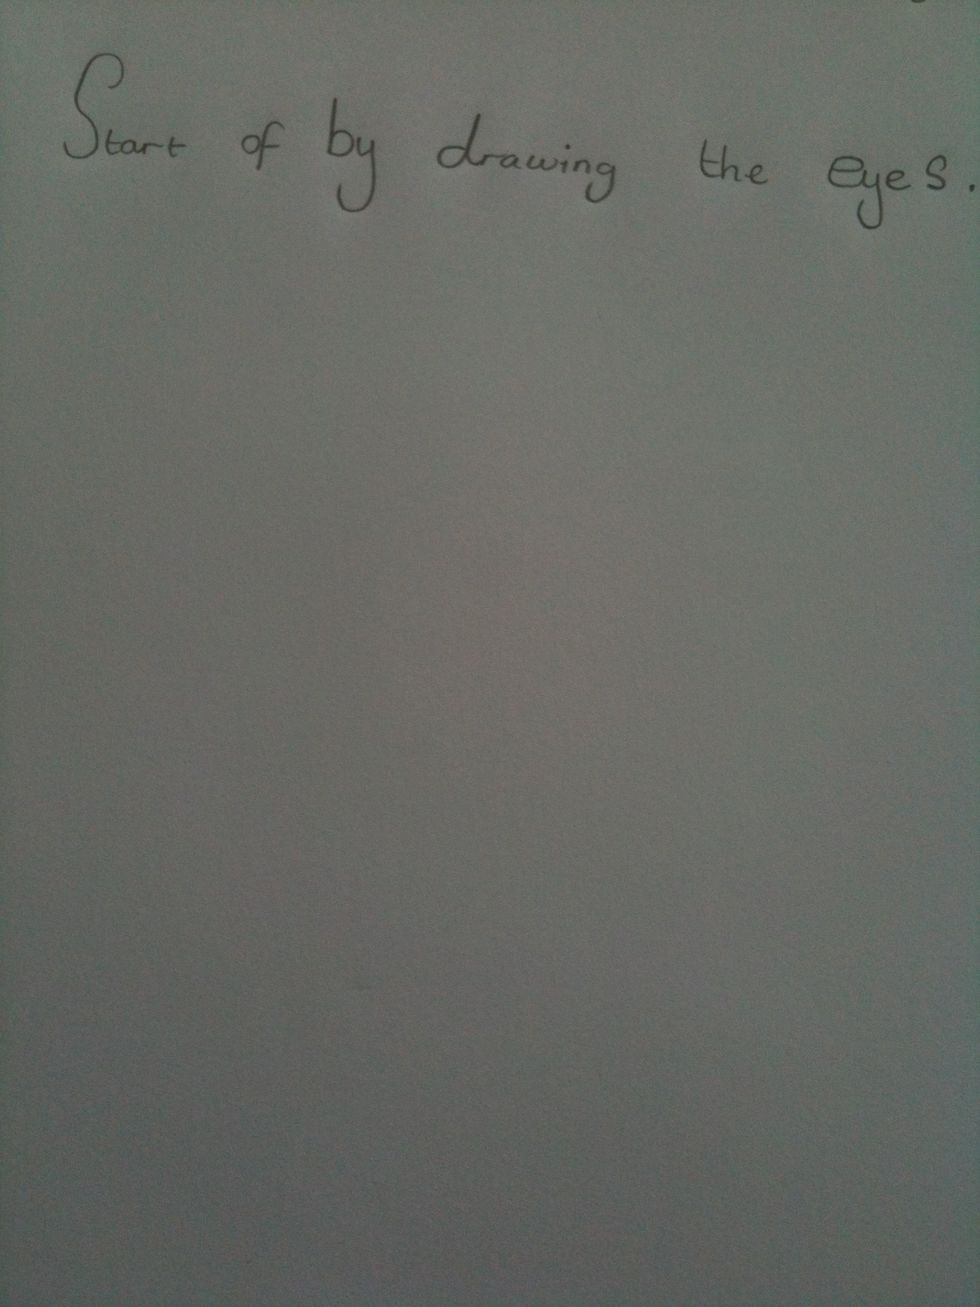 Start of by drawing the eyes.